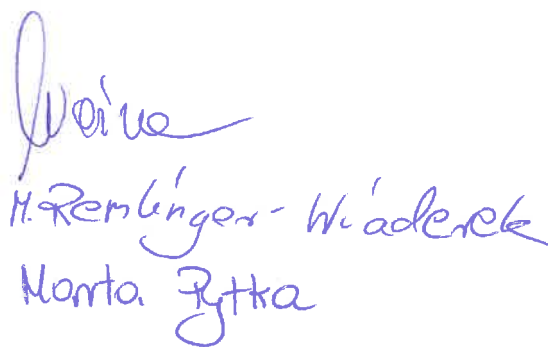 M. Remlinger-Wiaderek
Marta Pytka